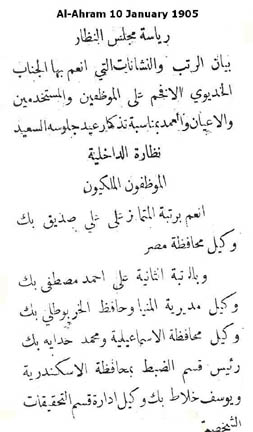 Al-Ahram 10 January 1905
رياسة مجلس النظار
بيان الرتب والنشانات التي انعم بها الجناب
الخديوي الافخم على الموظفين والمستخدمين
والاعيان والعمد بمناسبة تذكار عيد جلوسه السعيد
نظارة الداخلية
الموظفون الملكيون
انعم برتبة المتمايز على علي صديق بك
وكيل محافظة مصر
وبالرتبة الثانية على احمد مصطفى بك
وكيل مديرية المنيا وحافظ الخربوطلي بك
وكيل محافظة الاسماعيلية ومحمد حدايه بك
رئيس قسم الضبط بمحافظة الاسكندرية
ويوسف خلاط بك وكيل ادارة قسم التحقيقات